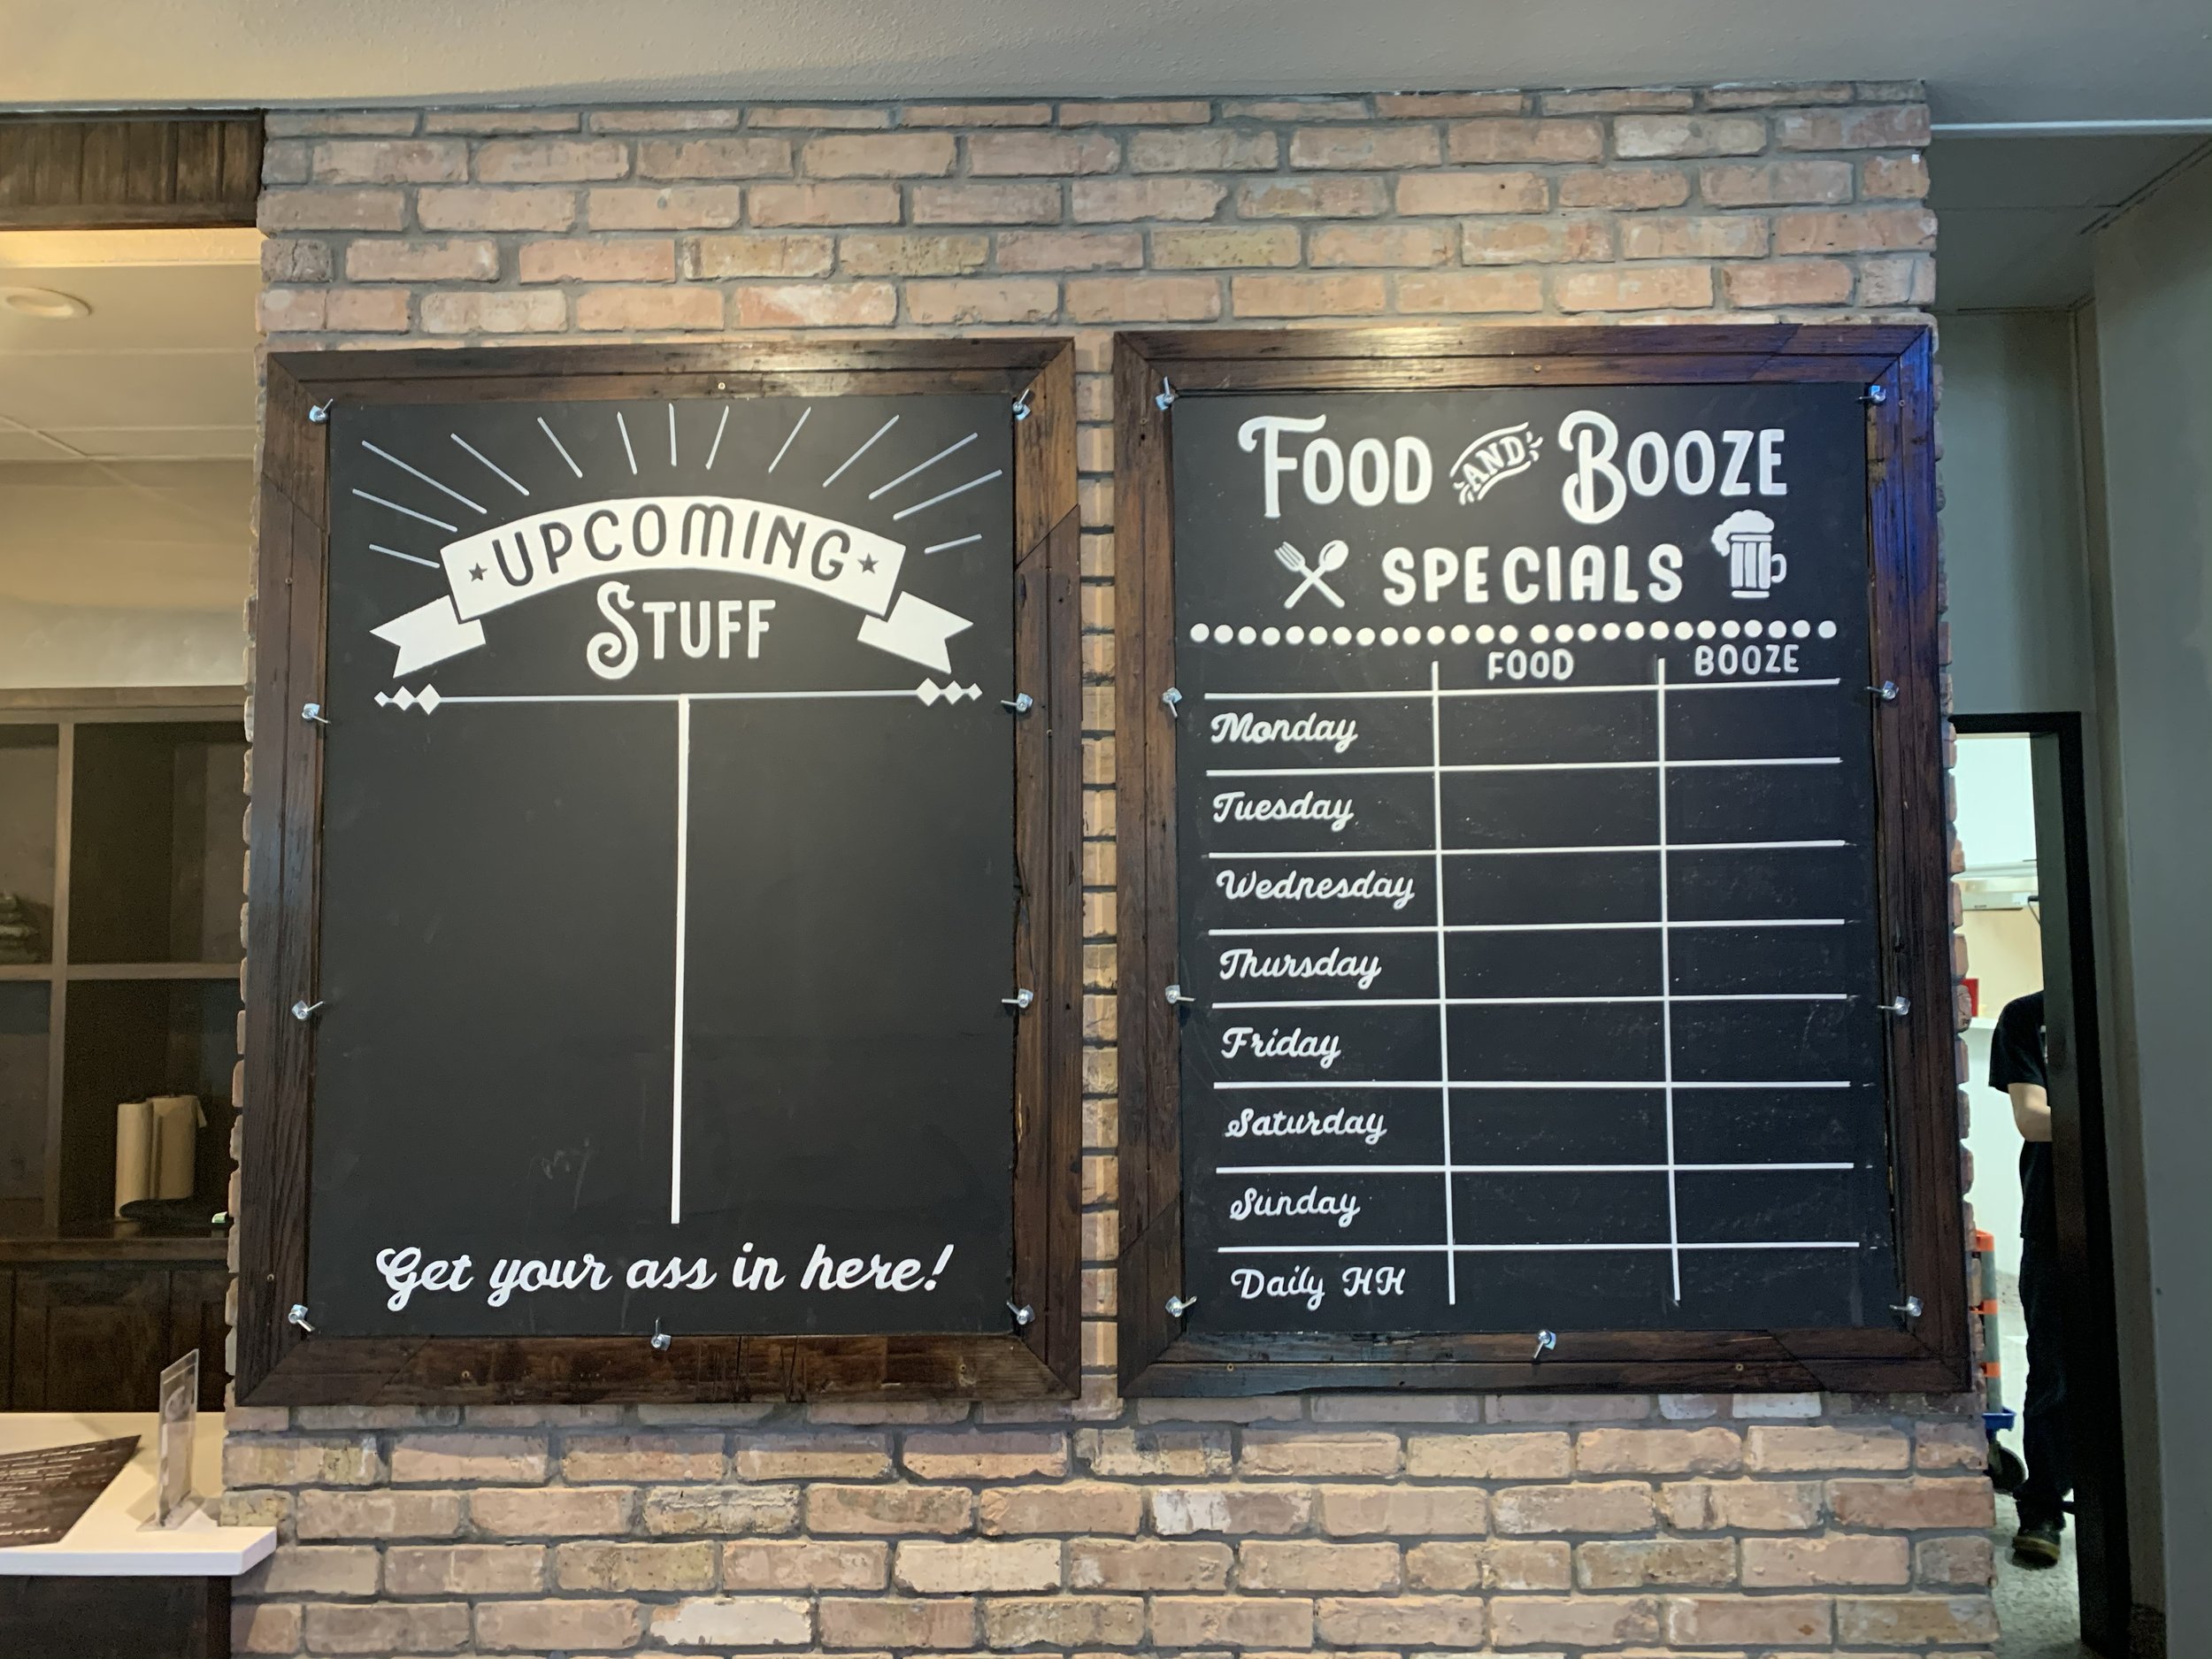 UPCOMING
STUFF
Get your ass in here!
FOOD AND BOOZE
SPECIALS
FOOD BOOZE
Monday
Tuesday
Wednesday
Thursday
Friday
Saturday
Sunday
Daily HH